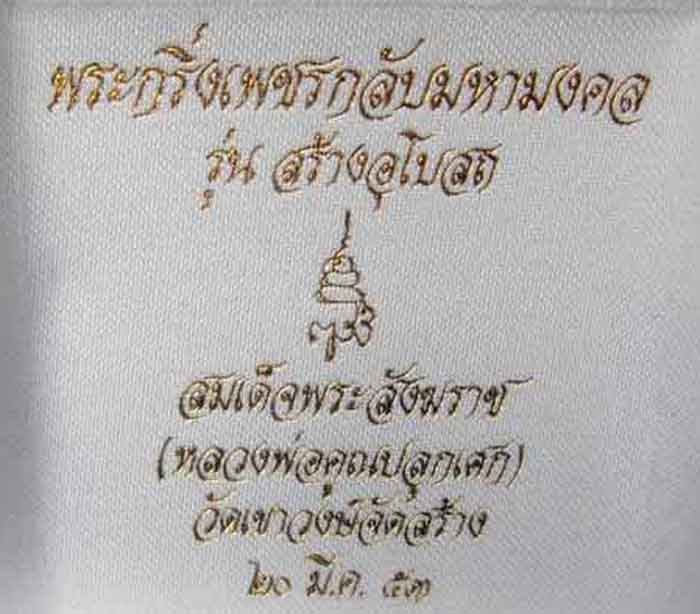 พระกริ่งเพชรกลับมหามงคล
รุ่น สร้างอุโบสถ
สมเด็จพระสังฆราช
(หลวงพ่อคูณปลุกเสก)
วัดเขาวงษ์จัดสร้าง
๒๐ มี.ค. ๕๓